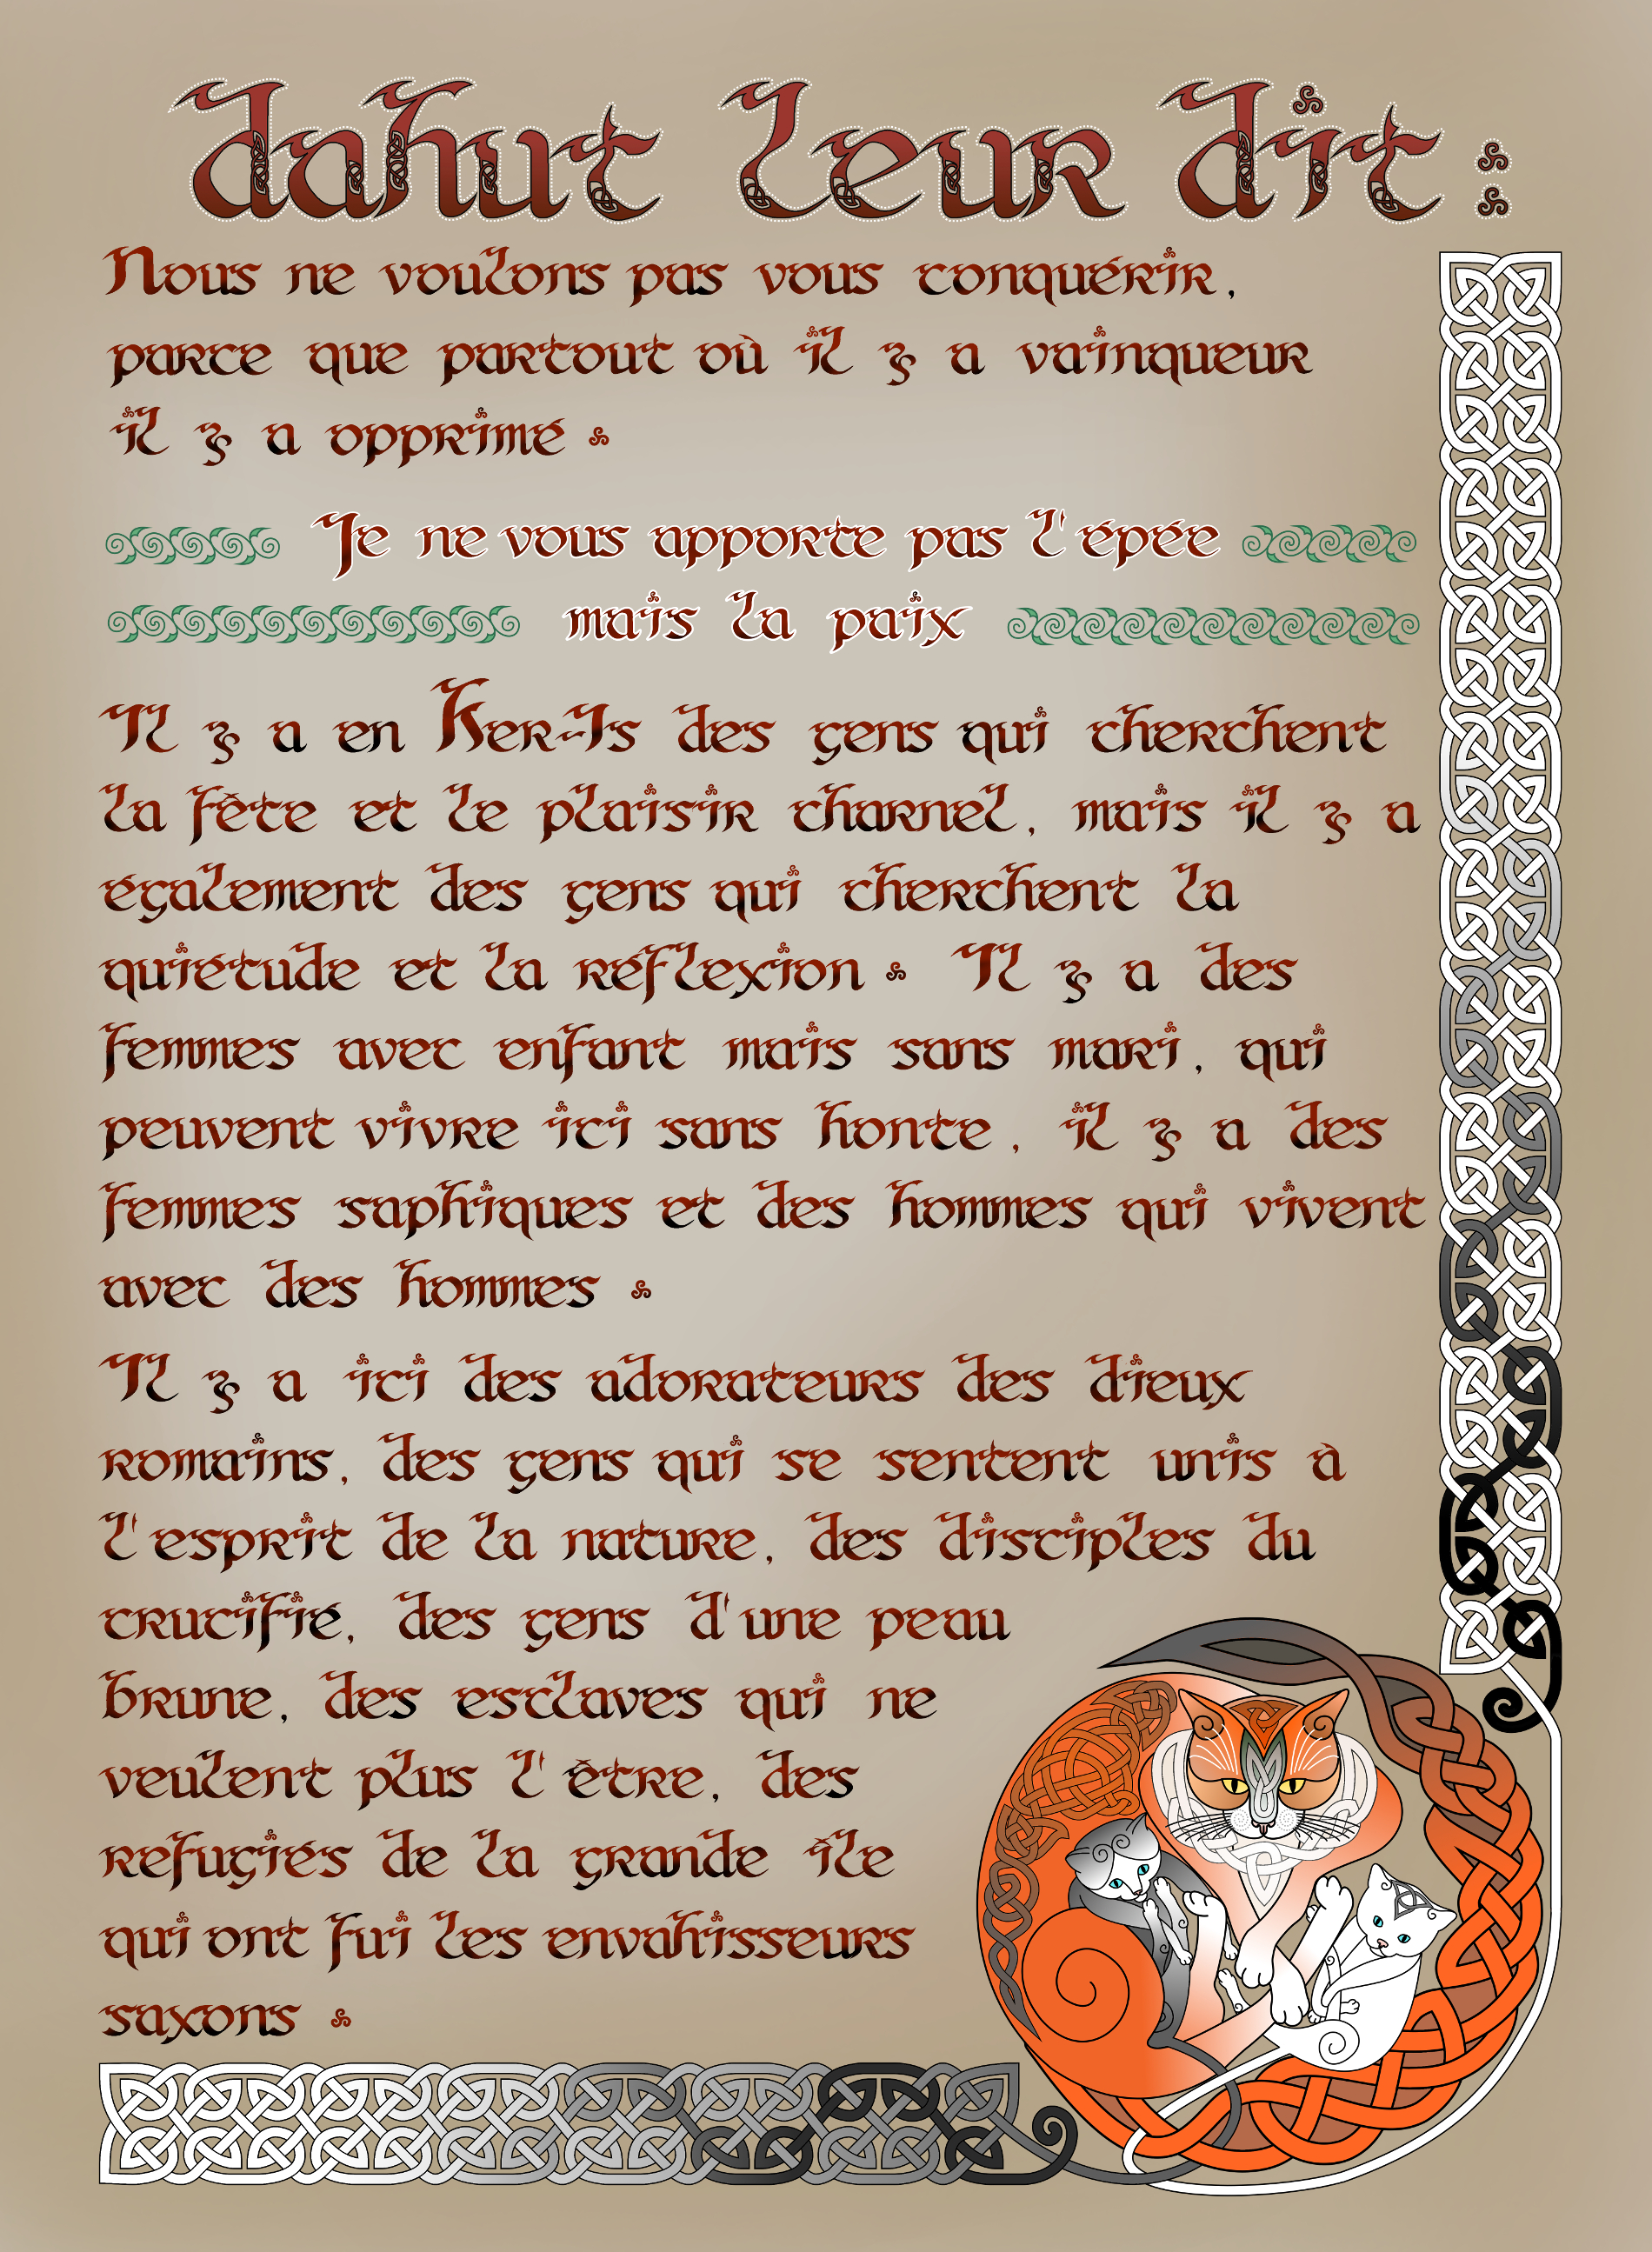 dahut leur dit :
Nous ne voulons pas vous conquérir,
parce que partout où il y a vainqueur
il y a opprimé.
Je ne vous apporte pas l'épée
mais la paix
Il y a en Ker-Is des gens qui cherchent
la fête et le plaisir charnel, mais il y a
également des gens qui cherchent la
quiétude et la réflexion. Il y a des
femmes avec enfant mais sans mari, qui
peuvent vivre ici sans honte, il y a des
femmes saphiques et des hommes qui vivent
avec des hommes.
Il y a ici des adorateurs des dieux
romains, des gens qui se sentent unis à
l'esprit de la nature, des disciples du
crucifié, des gens d'une peau
brune, des esclaves qui ne
veulent plus l'être, des
refugiés de la grande île
qui ont fui les envahisseurs
saxons.